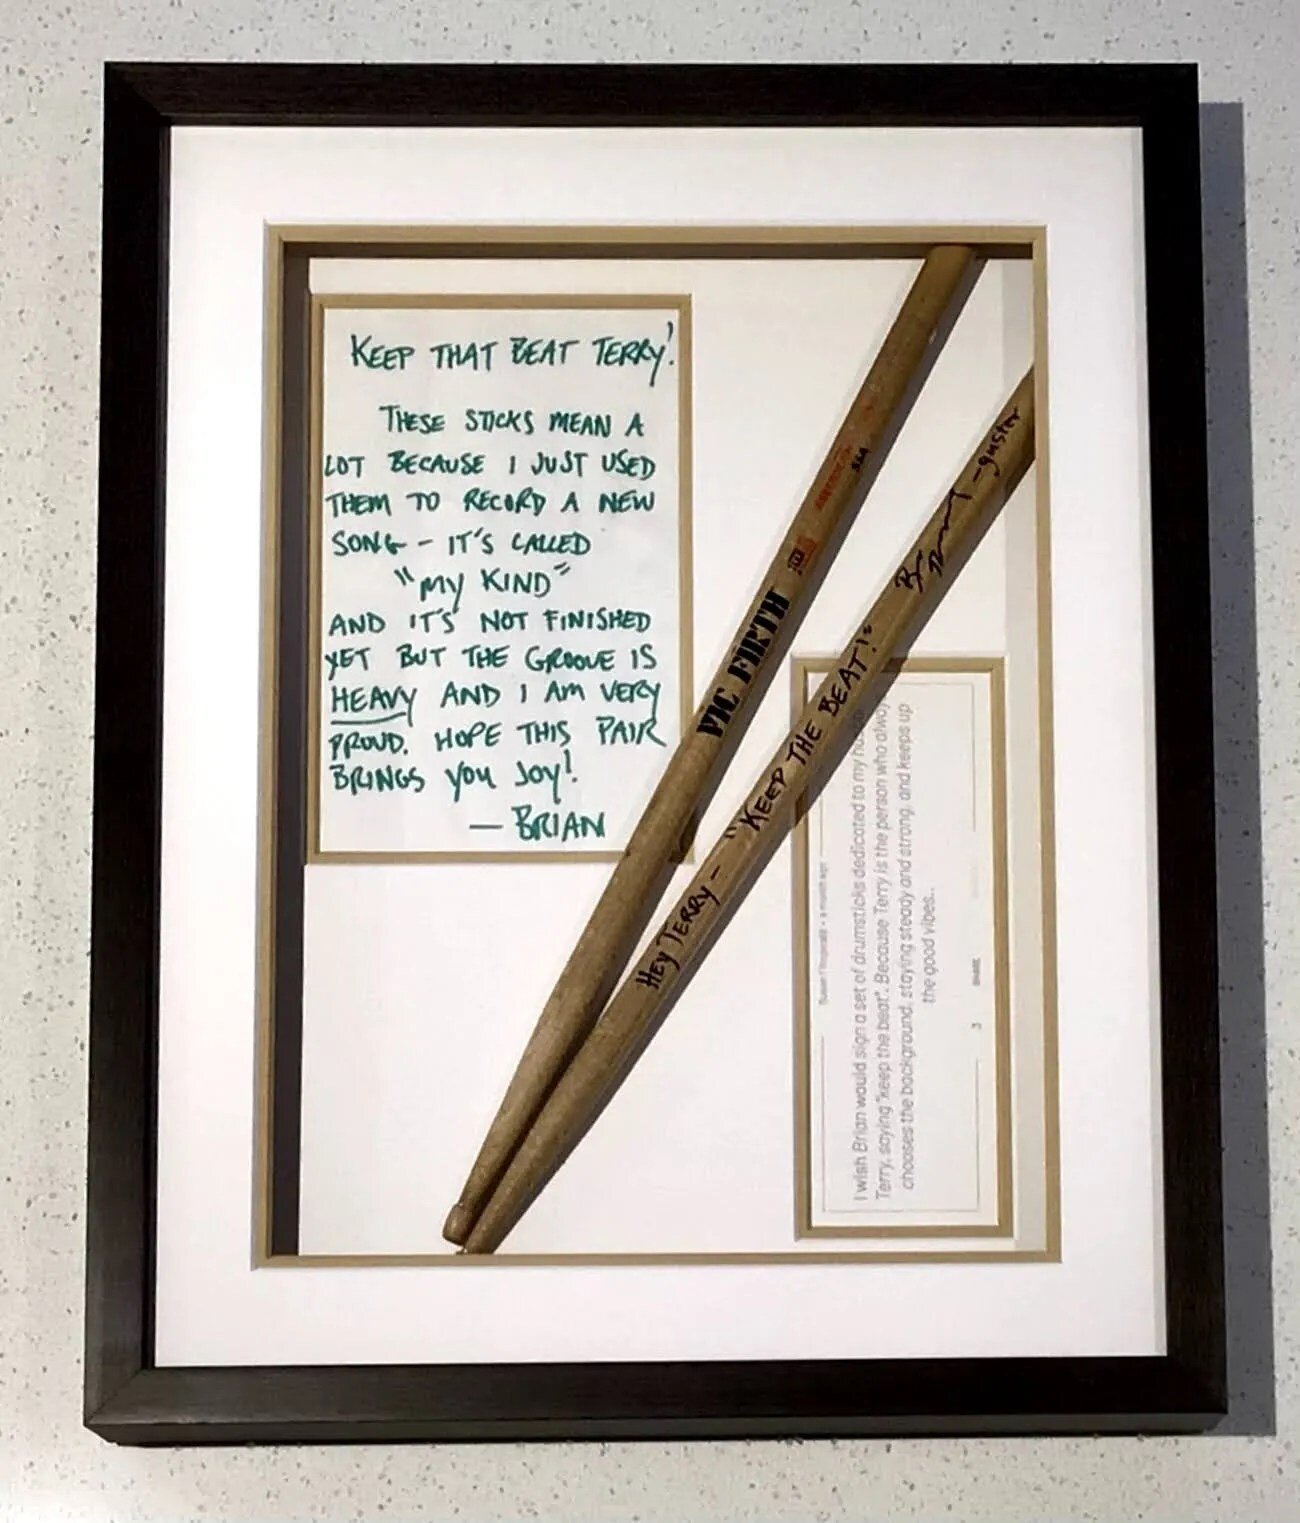 KEEP THAT BEAT TERRY!
THESE STICKS MEAN A
LOT BECAUSE I JUST USED
THEM TO RECORD A NEW
SONG - IT'S CALLED
"MY KIND"
AND IT'S NOT FINISHED
YET BUT THE GROOVE IS
HEAVY AND I AM VERY
PROUD. HOPE THIS PAIR
BRINGS YOU JOY!
— BRIAN
VIC FIRTH
55A
HEY TERRY - "KEEP THE BEAT!"
- guster
I wish Brian would sign a set of drumsticks dedicated to my
Terry, saying "keep the beat". Because Terry is the person who
chooses the background, staying steady and strong, and keeps up
the good vibes..
3 SHARE